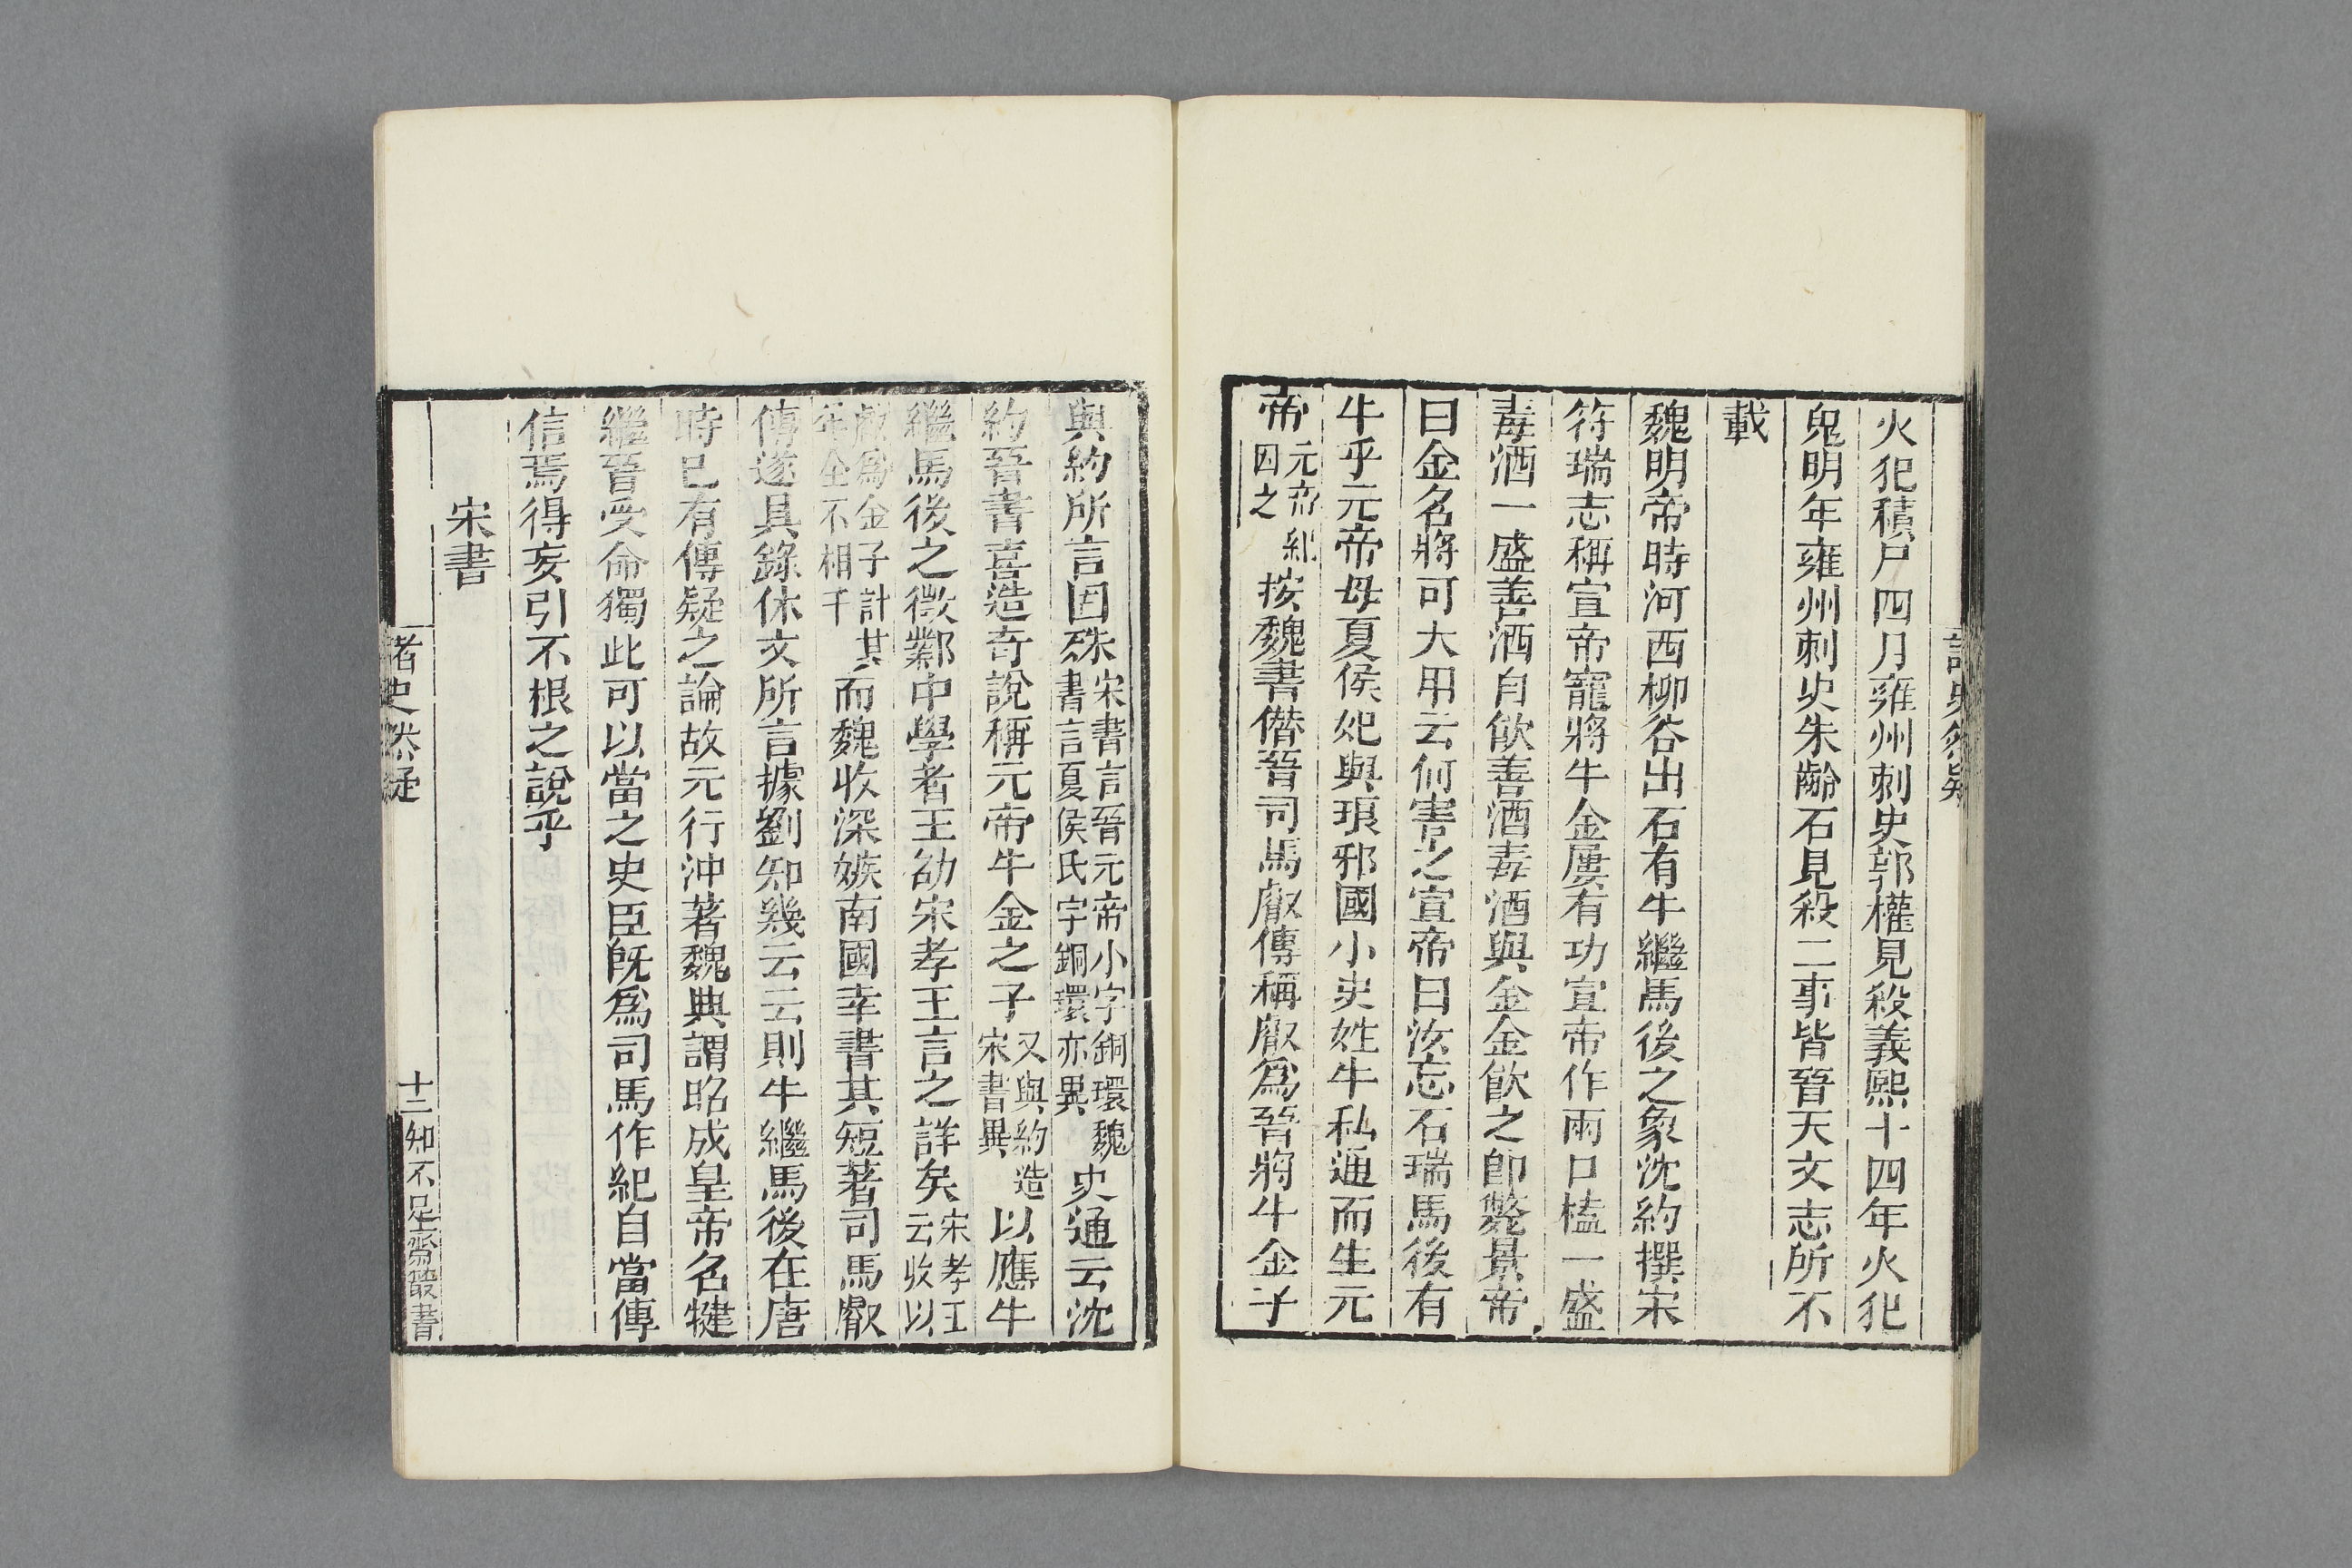 火犯積尸四月雍州刺史郭權見殺義熙十四年火犯
鬼明年雍州刺史朱齡石見殺二事皆晉天文志所不
載
魏明帝時河西柳谷出石有牛繼馬後之象沈約撰宋
符瑞志稱宣帝寵將牛金屢有功宣帝作兩口榼一盛
毒酒一盛善酒自飲善酒毒酒與金金飲之卽斃景帝
曰金名將可大用云何害之宣帝曰汝忘石瑞馬後有
牛乎元帝母夏侯妃與琅邪國小吏姓牛私通而生元
帝元帝紀因之按魏書僭晉司馬叡傳稱叡爲晉將牛金子
與約所言固殊宋書言晉元帝小字銅環魏書言夏侯氏字銅環亦異史通云沈
約晉書喜造奇說稱元帝牛金之子又與約造宋書異以應牛
繼馬後之徵鄴中學者王劭宋孝王言之詳矣宋孝王云收以
叡爲金子計其年全不相干而魏收深嫉南國幸書其短著司馬叡
傳遂具錄休文所言據劉知幾云云則牛繼馬後在唐
時已有傳疑之論故元行沖著魏典謂昭成皇帝名犍
繼晉受命獨此可以當之史臣旣爲司馬作紀自當傳
信焉得妄引不根之說乎
宋書
諸史然疑
十二
知不足齋叢書